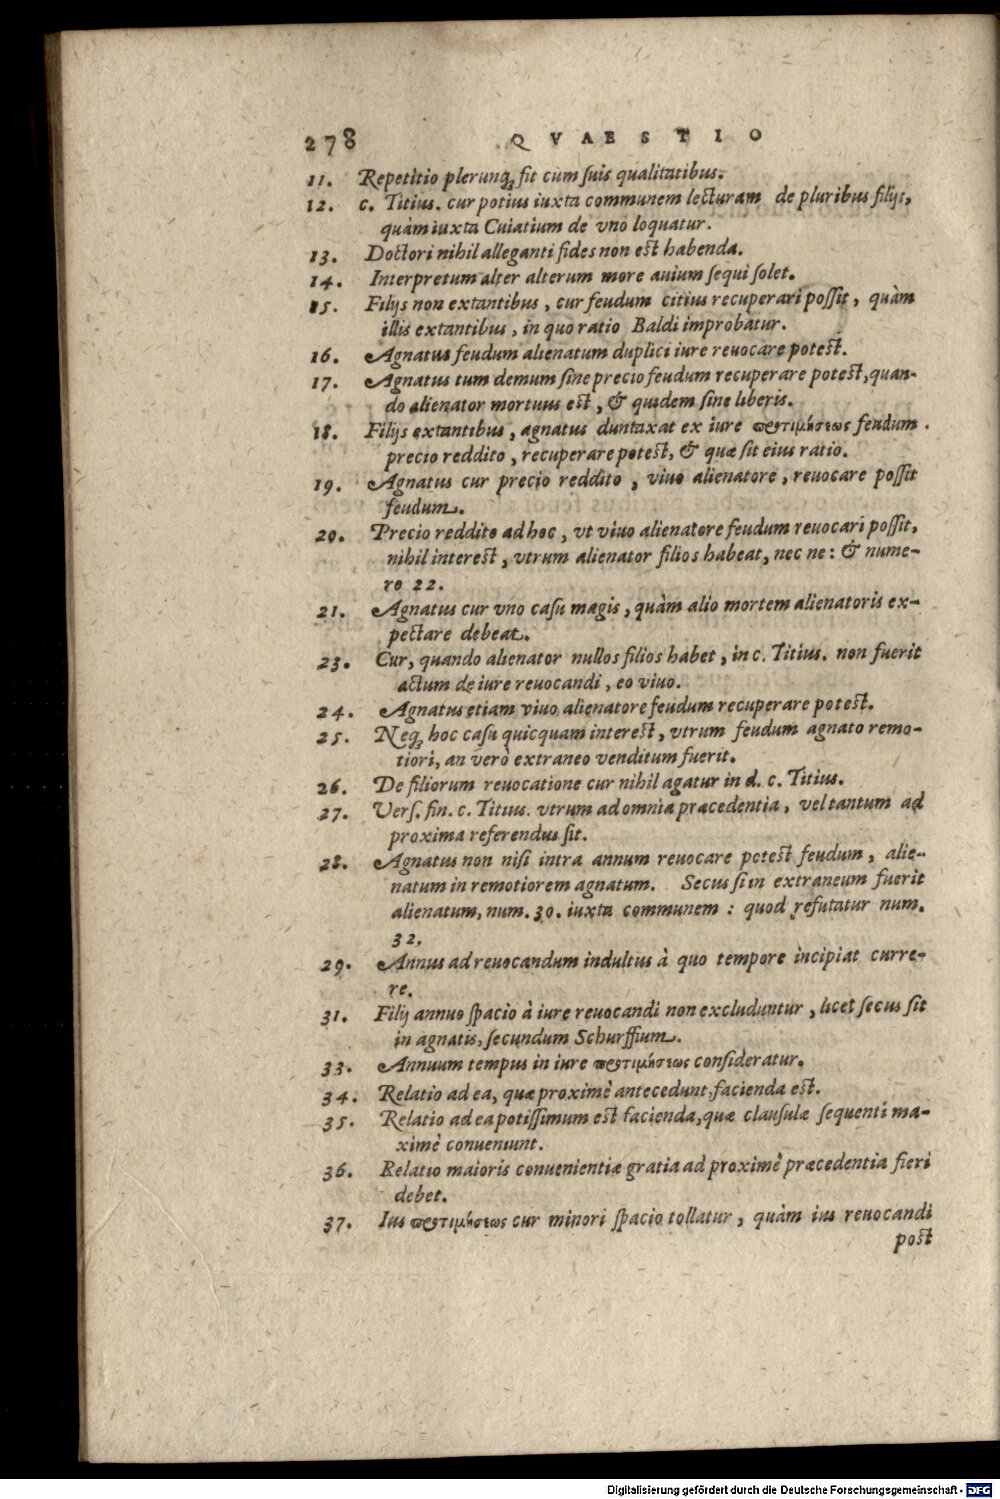 278 QVAESTIO
11. Repetitio plerunq; fit cùm suis qualitatibus.
12. c. Titius. cur potius iuxta communem lecturam de pluribus filijs,
quàm iuxta Cuiatium de vno loquatur.
13. Doctori nihil alleganti fides non est habenda.
14. Interpretum alter alterum more auium sequi solet.
15. Filijs non extantibus, cur feudum citius recuperari possit, quàm
illis extantibus, in quo ratio Baldi improbatur.
16. Agnatus feudum alienatum duplici iure reuocare potest.
17. Agnatus tum demum sine precio feudum recuperare potest, quan-
do alienator mortuus est, & quidem sine liberis.
18. Filijs extantibus, agnatus duntaxat ex iure προτιμήσεως feudum
precio reddito, recuperare potest, & quæ sit eius ratio.
19. Agnatus cur precio reddito, viuo alienatore, reuocare possit
feudum.
20. Precio reddito ad hoc, vt viuo alienatore feudum reuocari possit,
nihil interest, vtrum alienator filios habeat, nec ne: & nume-
ro 22.
21. Agnatus cur vno casu magis, quàm alio mortem alienatoris ex-
pectare debeat.
23. Cur, quando alienator nullos filios habet, in c. Titius. non fuerit
actum de iure reuocandi, eo viuo.
24. Agnatus etiam viuo alienatore feudum recuperare potest.
25. Neq; hoc casu quicquam interest, vtrum feudum agnato remo-
tiori, an verò extraneo venditum fuerit.
26. De filiorum reuocatione cur nihil agatur in d. c. Titius.
27. Vers. fin. c. Titius. vtrum ad omnia præcedentia, vel tantum ad
proxima referendus sit.
28. Agnatus non nisi intra annum reuocare potest feudum, alie-
natum in remotiorem agnatum. Secus si in extraneum fuerit
alienatum, num. 30. iuxta communem: quod refutatur num.
32.
29. Annus ad reuocandum indultus à quo tempore incipiat curre-
re.
31. Filij annuo spacio à iure reuocandi non excluduntur, licet secus sit
in agnatis, secundum Schurffium.
33. Annuum tempus in iure προτιμήσεως consideratur.
34. Relatio ad ea, quæ proximè antecedunt, facienda est.
35. Relatio ad ea potissimum est facienda, quæ clausulæ sequenti ma-
ximè conueniunt.
36. Relatio maioris conuenientiæ gratia ad proximè præcedentia fieri
debet.
37. Ius προτιμήσεως cur minori spacio tollatur, quàm ius reuocandi
post
Digitalisierung gefördert durch die Deutsche Forschungsgemeinschaft - DFG